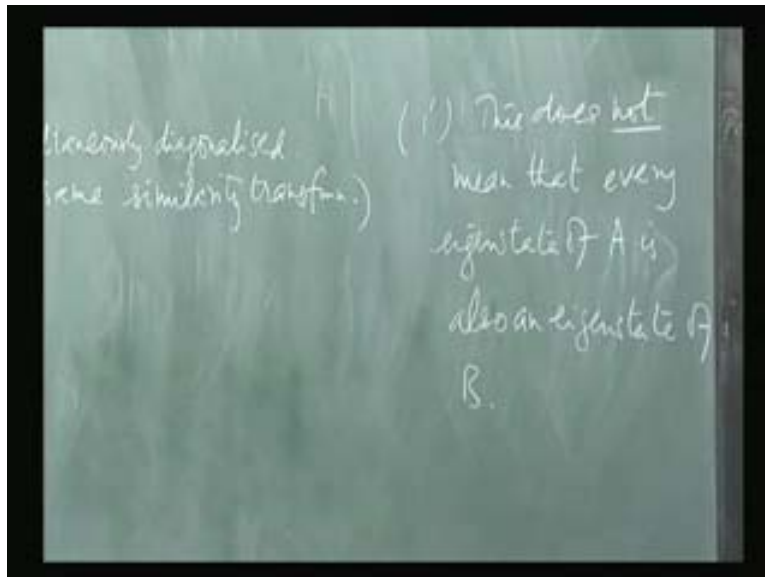 taneously diagonalised
same similarity transfmn.)
(i) This does not
mean that every
eigenstate of A is
also an eigenstate of
B.